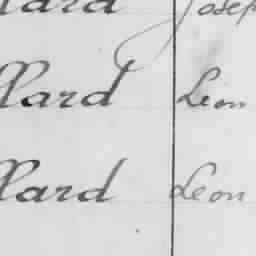 llard Joseph
llard Leon
llard Leon